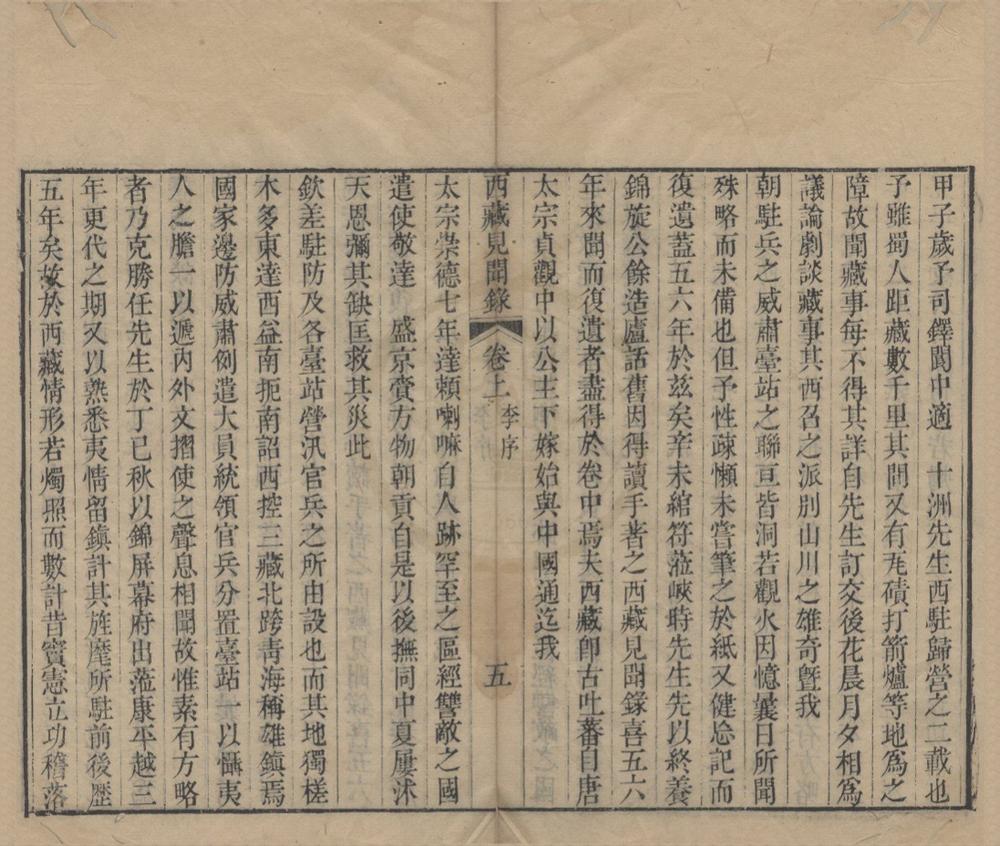 甲子歲予司鐸閬中適　十洲先生西駐歸營之二載也
予雖蜀人距藏數千里其間又有尨磧打箭爐等地爲之
障故聞藏事每不得其詳自先生訂交後花晨月夕相爲
議論劇談藏事其西召之派別山川之雄奇曁我
朝駐兵之威肅臺站之聯亘皆洞若觀火因憶曩日所聞
殊略而未備也但予性疎懶未嘗筆之於紙又健忘記而
復遺蓋五六年於兹矣辛未綰符蒞峽時先生先以終養
錦旋公餘造廬話舊因得讀手著之西藏見聞錄喜五六
年來聞而復遺者盡得於卷中焉夫西藏卽古吐蕃自唐
太宗貞觀中以公主下嫁始與中國通迄我
西藏見聞錄　卷上　李序　五
太宗崇德七年達賴喇嘛自人跡罕至之區經讐敵之國
遣使敬達　盛京賫方物朝貢自是以後撫同中夏屢沭
天恩彌其缺匡救其災此
欽差駐防及各臺站營汛官兵之所由設也而其地獨槎
木多東達西益南扼南詔西控三藏北跨靑海稱雄鎭焉
國家邊防威肅例遣大員統領官兵分置臺站一以懾夷
人之膽一以遞內外文摺使之聲息相聞故惟素有方略
者乃克勝任先生於丁巳秋以錦屏幕府出蒞康平越三
年更代之期又以熟悉夷情留鎭計其旌麾所駐前後歷
五年矣故於西藏情形若燭照而數計昔竇憲立功稽落